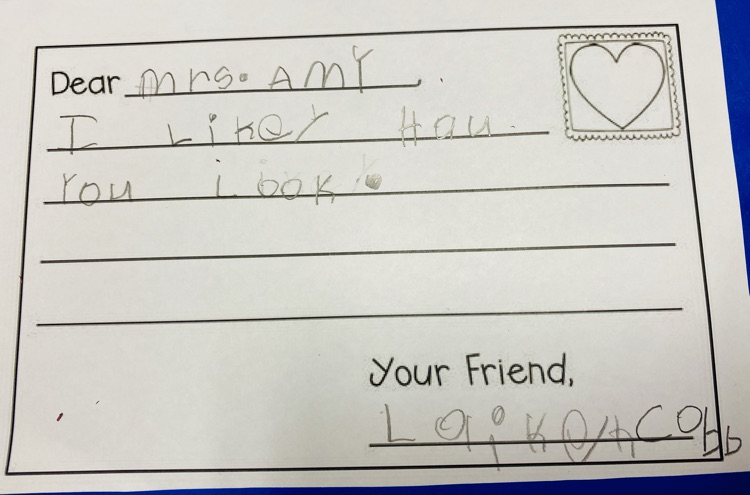 Dear Mrs. AMY
I Liker Hau
You look.
Your Friend,
Cobb